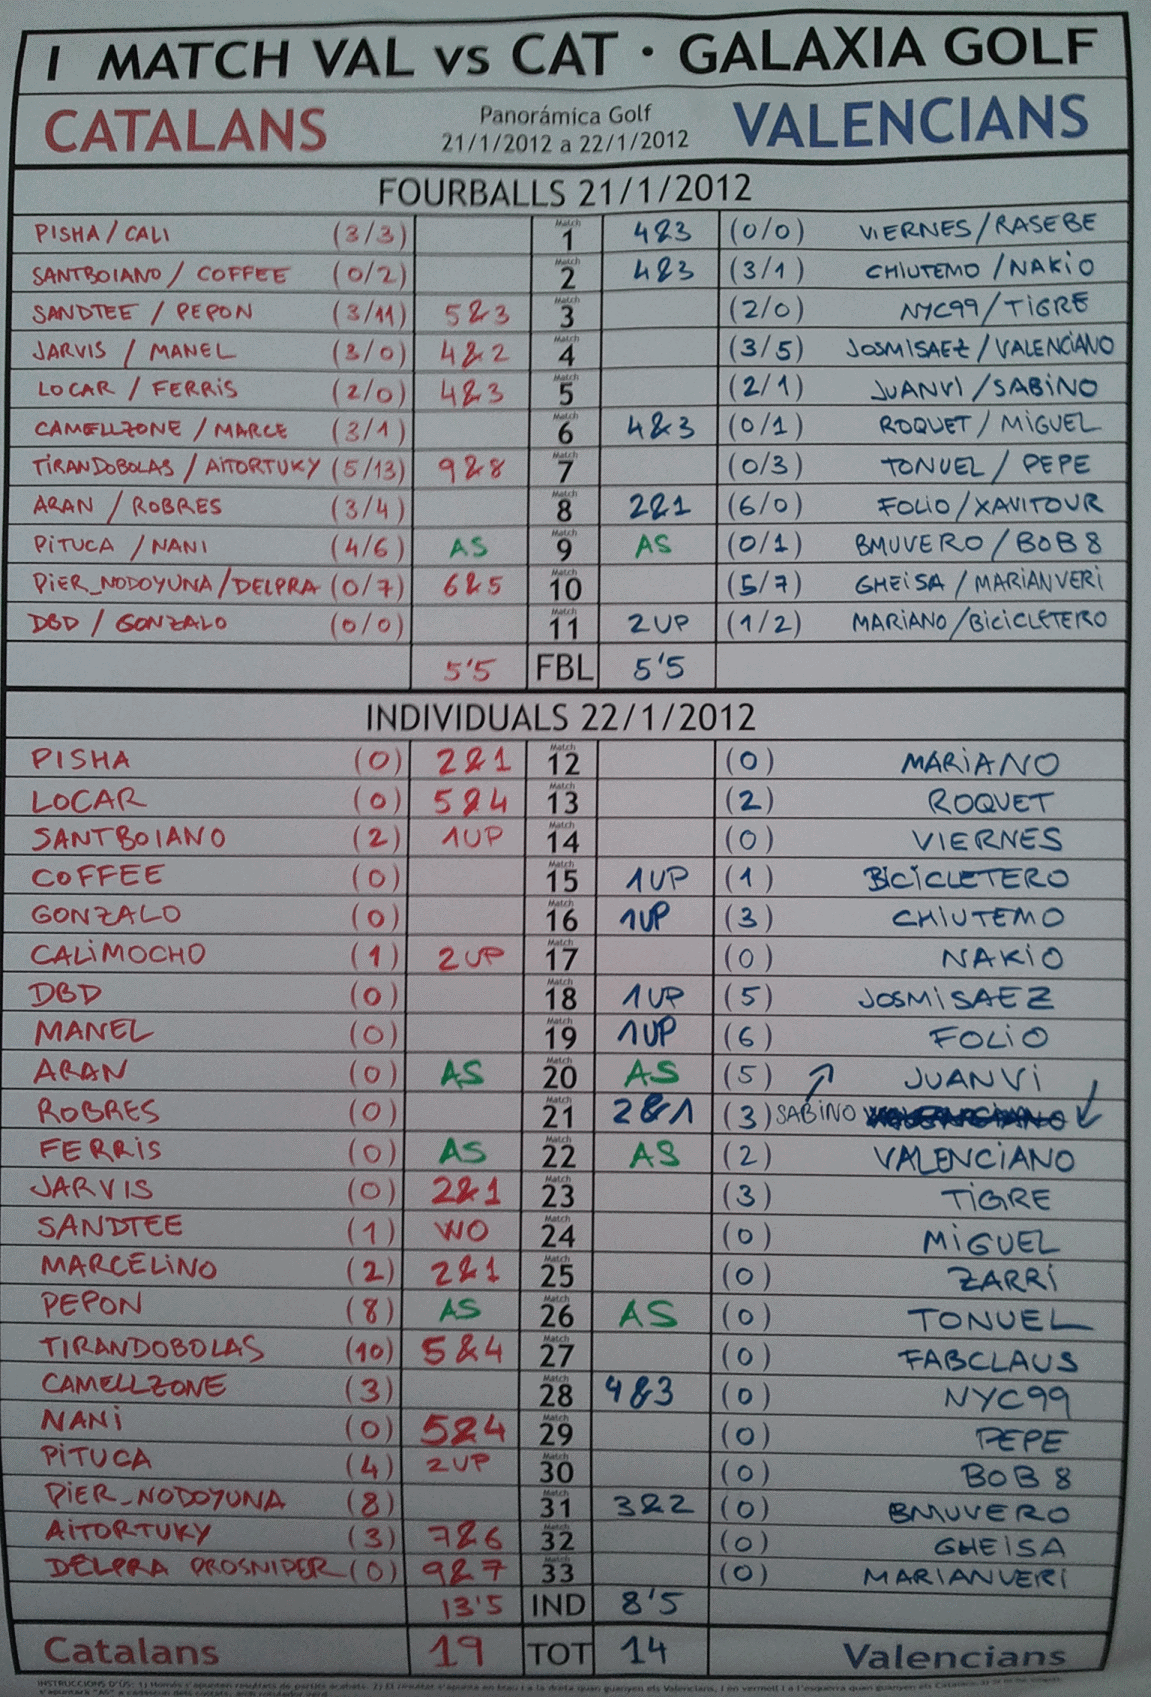 I MATCH VAL vs CAT · GALAXIA GOLF
CATALANS Panorámica Golf VALENCIANS
21/1/2012 a 22/1/2012
FOURBALLS 21/1/2012
PISHA/CALI (3/3) Match 1 4&3 (0/0) VIERNES/RASEBE
SANTBOIANO / COFFEE (0/2) Match 2 4&3 (3/1) CHIUTEMO /NAKIO
SANDTEE / PEPON (3/11) 5&3 Match 3 (2/0) NYC99/TIGRE
JARVIS / MANEL (3/0) 4&2 Match 4 (3/5) JOSMISAEZ/VALENCIANO
LOCAR / FERRIS (2/0) 4&3 Match 5 (2/1) JUANVI/SABINO
CAMELLZONE / MARCE (3/1) Match 6 4&3 (0/1) ROQUET / MIGUEL
TIRANDOBOLAS / AITORTUKY (5/13) 9&8 Match 7 (0/3) TONUEL / PEPE
ARAN / ROBRES (3/4) Match 8 2&1 (6/0) FOLIO/XAVITOUR
PITUCA /NANI (4/6) AS Match 9 AS (0/1) BMUVERO/BOB 8
PIER_NODOYUNA/DELPRA (0/7) 6&5 Match 10 (5/7) GHEISA / MARIANVERI
DBD / GONZALO (0/0) Match 11 2UP (1/2) MARIANO/BICICLETERO
5'5 FBL 5'5
INDIVIDUALS 22/1/2012
PISHA (0) 2&1 Match 12 (0) MARIANO
LOCAR (0) 5&4 Match 13 (2) ROQUET
SANTBOIANO (2) 1UP Match 14 (0) VIERNES
COFFEE (0) Match 15 1UP (1) BICICLETERO
GONZALO (0) Match 16 1UP (3) CHIUTEMO
CALIMOCHO (1) 2UP Match 17 (0) NAKIO
DBD (0) Match 18 1UP (5) JOSMISAEZ
MANEL (0) Match 19 1UP (6) FOLIO
ARAN (0) AS Match 20 AS (5) JUANVI
ROBRES (0) Match 21 2&1 (3) SABINO
FERRIS (0) AS Match 22 AS (2) VALENCIANO
JARVIS (0) 2&1 Match 23 (3) TIGRE
SANDTEE (1) WO Match 24 (0) MIGUEL
MARCELINO (2) 2&1 Match 25 (0) ZARRI
PEPON (8) AS Match 26 AS (0) TONUEL
TIRANDOBOLAS (10) 5&4 Match 27 (0) FABCLAUS
CAMELLZONE (3) Match 28 4&3 (0) NYC99
NANI (0) 5&4 Match 29 (0) PEPE
PITUCA (4) 2UP Match 30 (0) BOB 8
PIER_NODOYUNA (8) Match 31 3&2 (0) BMUVERO
AITORTUKY (3) 7&6 Match 32 (0) GHEISA
DELPRA PROSNIPER (0) 9&7 Match 33 (0) MARIANVERI
13'5 IND 8'5
Catalans 19 TOT 14 Valencians